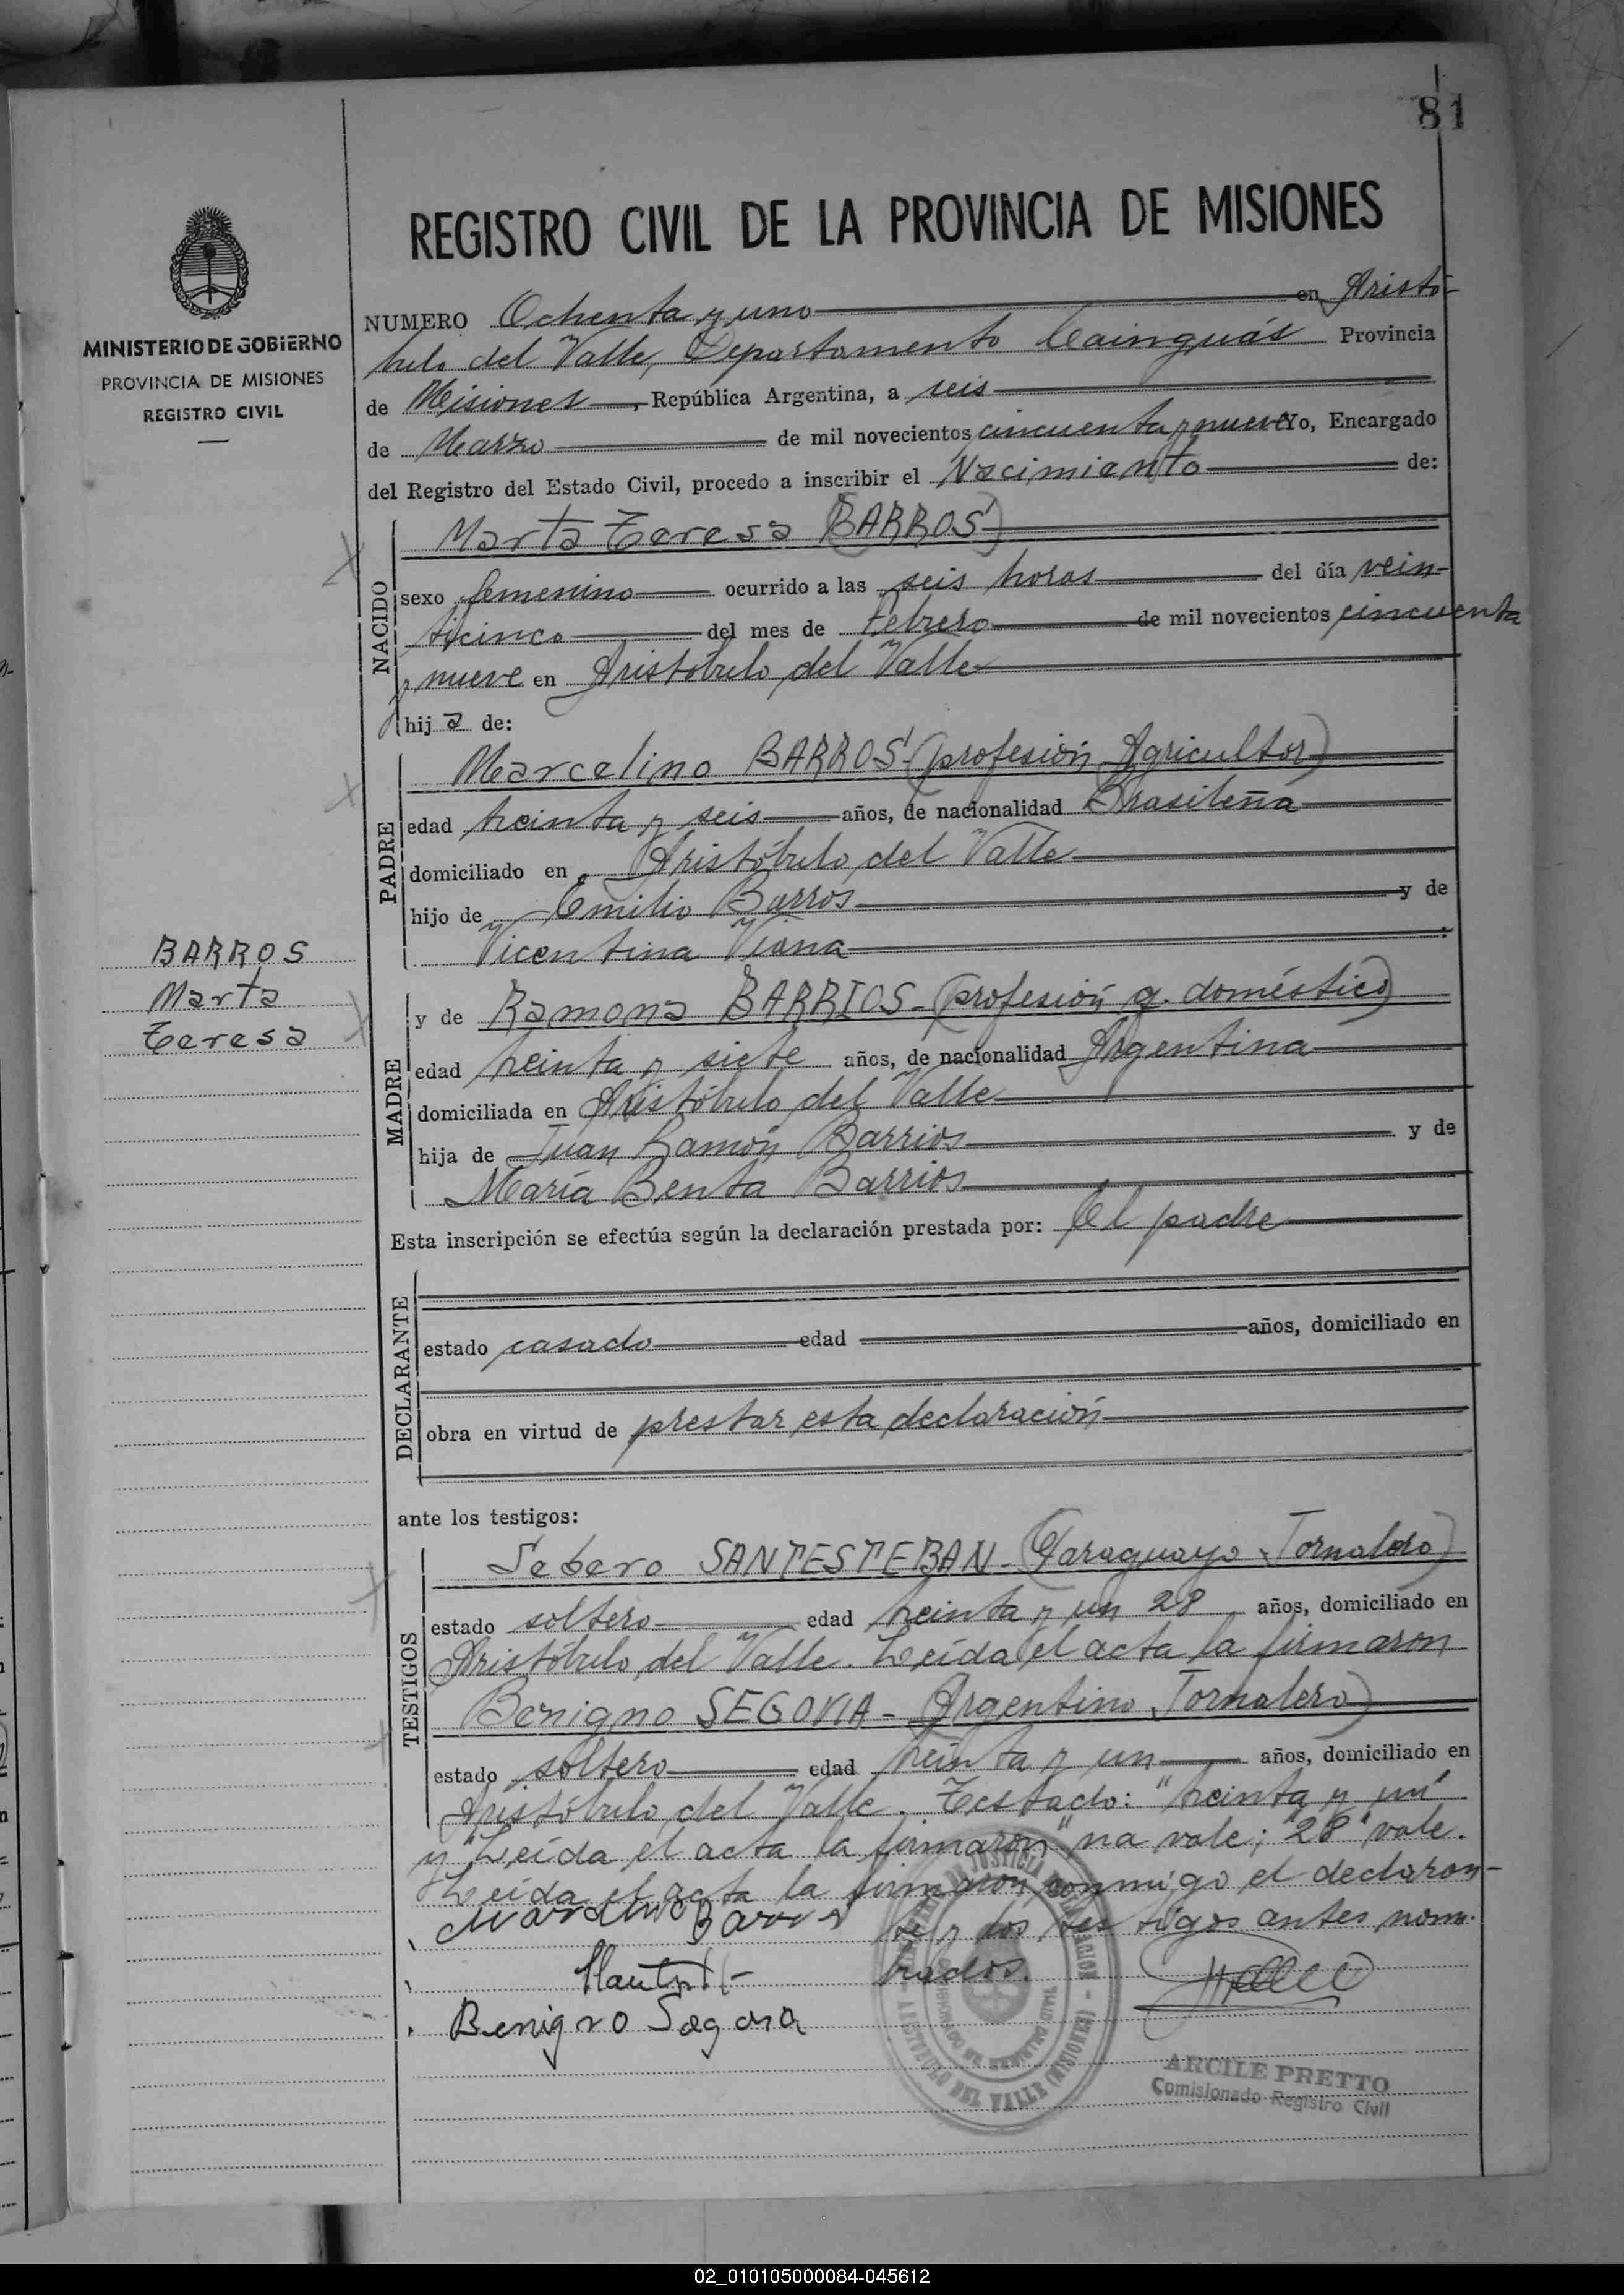 81
REGISTRO CIVIL DE LA PROVINCIA DE MISIONES
MINISTERIO DE GOBIERNO
PROVINCIA DE MISIONES
REGISTRO CIVIL
NUMERO Ochenta y uno en Aristó-
bulo del Valle, Departamento Cainguás Provincia
de Misiones, República Argentina, a seis
de Marzo de mil novecientos cincuenta y nueve Yo, Encargado
del Registro del Estado Civil, procedo a inscribir el Nacimiento de:
NACIDO
Marta Teresa (BARROS)
sexo femenino ocurrido a las seis horas del día vein-
ticinco del mes de Febrero de mil novecientos cincuenta
y nueve en Aristóbulo del Valle
hija de:
PADRE
Marcelino BARROS (profesión Agricultor)
edad treinta y seis años, de nacionalidad Brasileña
domiciliado en Aristóbulo del Valle
hijo de Emilio Barros y de
Vicentina Viana
BARROS
Marta
Teresa
MADRE
y de Ramona BARRIOS - (profesión q. doméstico)
edad treinta y siete años, de nacionalidad Argentina
domiciliada en Aristóbulo del Valle
hija de Juan Ramón Barrios y de
María Benta Barrios
Esta inscripción se efectúa según la declaración prestada por: El padre
DECLARANTE
estado casado edad años, domiciliado en
obra en virtud de prestar esta declaración
ante los testigos:
TESTIGOS
Sebero SANTESTEBAN - (Paraguayo - Jornalero)
estado soltero edad treinta y un 28 años, domiciliado en
Aristóbulo del Valle. Leída el acta la firmaron
Benigno SEGOVIA - (Argentino Jornalero)
estado soltero edad treinta y un años, domiciliado en
Aristóbulo del Valle. Testado: "treinta y un"
y "Leída el acta la firmaron" na vale; "28" vale.
Leída el acta la firmaron conmigo el declaran-
te y los testigos antes nom-
brados.
Marcelino Barros
Benigno Segovia
ARISTOBULO DEL VALLE (MISIONES)
ARCILE PRETTO
Comisionado Registro Civil
02_010105000084-045612